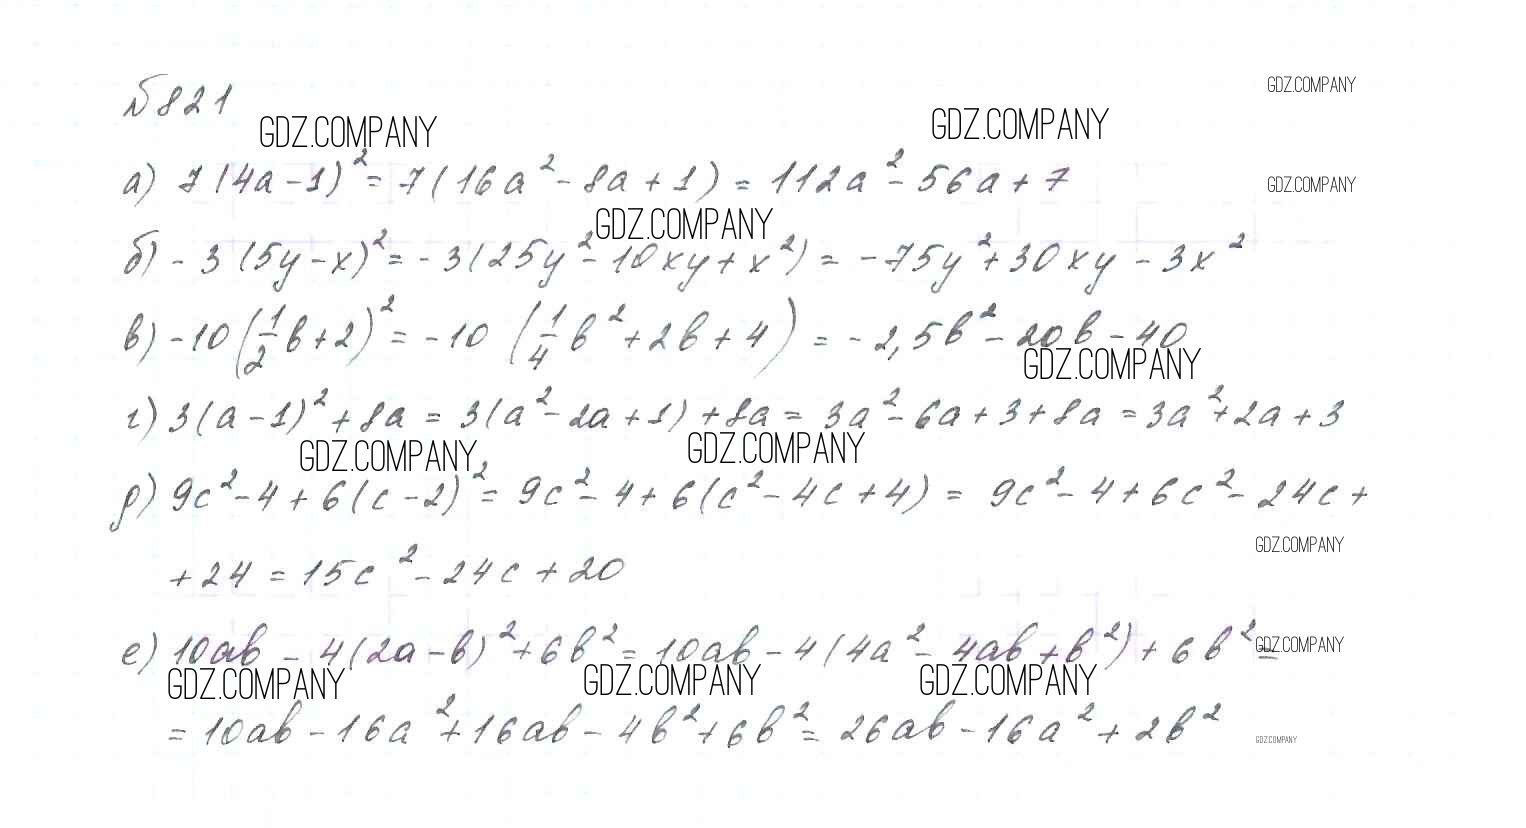 №821
GDZ.COMPANY
GDZ.COMPANY
GDZ.COMPANY
а) 7(4a-1)² = 7(16a² - 8a + 1) = 112a² - 56a + 7
GDZ.COMPANY
GDZ.COMPANY
б) -3(5y-x)² = -3(25y² - 10xy + x²) = -75y² + 30xy - 3x²
в) -10(1/2b+2)² = -10(1/4b² + 2b + 4) = -2,5b² - 20b - 40
GDZ.COMPANY
г) 3(a-1)² + 8a = 3(a² - 2a + 1) + 8a = 3a² - 6a + 3 + 8a = 3a² + 2a + 3
GDZ.COMPANY
GDZ.COMPANY
д) 9c² - 4 + 6(c-2)² = 9c² - 4 + 6(c² - 4c + 4) = 9c² - 4 + 6c² - 24c +
GDZ.COMPANY
+ 24 = 15c² - 24c + 20
е) 10ab - 4(2a-b)² + 6b² = 10ab - 4(4a² - 4ab + b²) + 6b² =
GDZ.COMPANY
GDZ.COMPANY
GDZ.COMPANY
GDZ.COMPANY
= 10ab - 16a² + 16ab - 4b² + 6b² = 26ab - 16a² + 2b²
GDZ.COMPANY